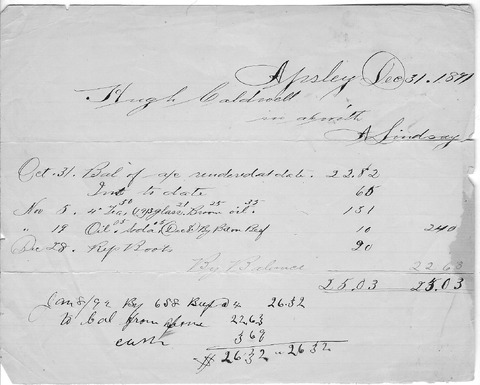 Apsley Dec 31. 1891
Hugh Caldwell
in a/c with
A Lindsay
Oct. 31. Bal of a/c rendered at date. 22 82
Int to date 65
Nov 5. 4# Tea 50 glass 21 Broom 25 oil. 25 151
" 19 Oil 25 Soda 05 By Beef 10 240
Dec 28. Rep Boots 90
By Balance 22 63
25.03 25.03
Jan 8/92 By 658 Beef D4 26.32
To bal from above 22 63
cash 3 69
$ 26 32 " 26 32